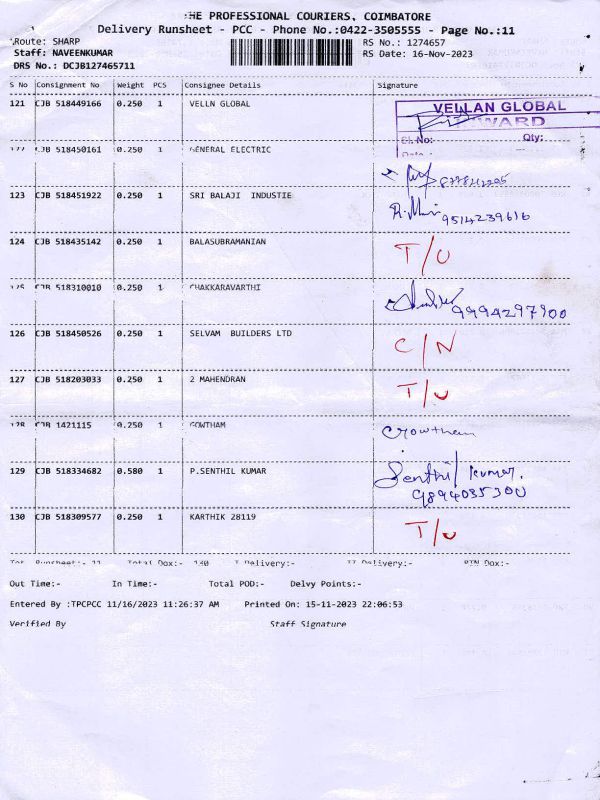 THE PROFESSIONAL COURIERS, COIMBATORE
Delivery Runsheet - PCC - Phone No.:0422-3505555 - Page No.:11
Route: SHARP
RS No.: 1274657
Staff: NAVEENKUMAR
RS Date: 16-Nov-2023
DRS No.: DCJB127465711
S No Consignment No Weight PCS Consignee Details Signature
121 CJB 518449166 0.250 1 VELLN GLOBAL
VELLAN GLOBAL
WARD
Sl. No: Qty:
Date
122 CJB 518450161 0.250 1 GENERAL ELECTRIC
123 CJB 518451922 0.250 1 SRI BALAJI INDUSTIE
9514239616
124 CJB 518435142 0.250 1 BALASUBRAMANIAN T/U
125 CJB 518310010 0.250 1 CHAKKARAVARTHI 9994297900
126 CJB 518450526 0.250 1 SELVAM BUILDERS LTD C/N
127 CJB 518203033 0.250 1 2 MAHENDRAN T/U
128 CJB 1421115 0.250 1 GOWTHAM Gowtham
129 CJB 518334682 0.580 1 P.SENTHIL KUMAR Senthil kumar.
9894035300
130 CJB 518309577 0.250 1 KARTHIK 28119 T/U
Tot Runsheet:- 11 Total Dox:- 130 I Delivery:- II Delivery:- RTN Dox:-
Out Time:- In Time:- Total POD:- Delvy Points:-
Entered By :TPCPCC 11/16/2023 11:26:37 AM Printed On: 15-11-2023 22:06:53
Verified By Staff Signature